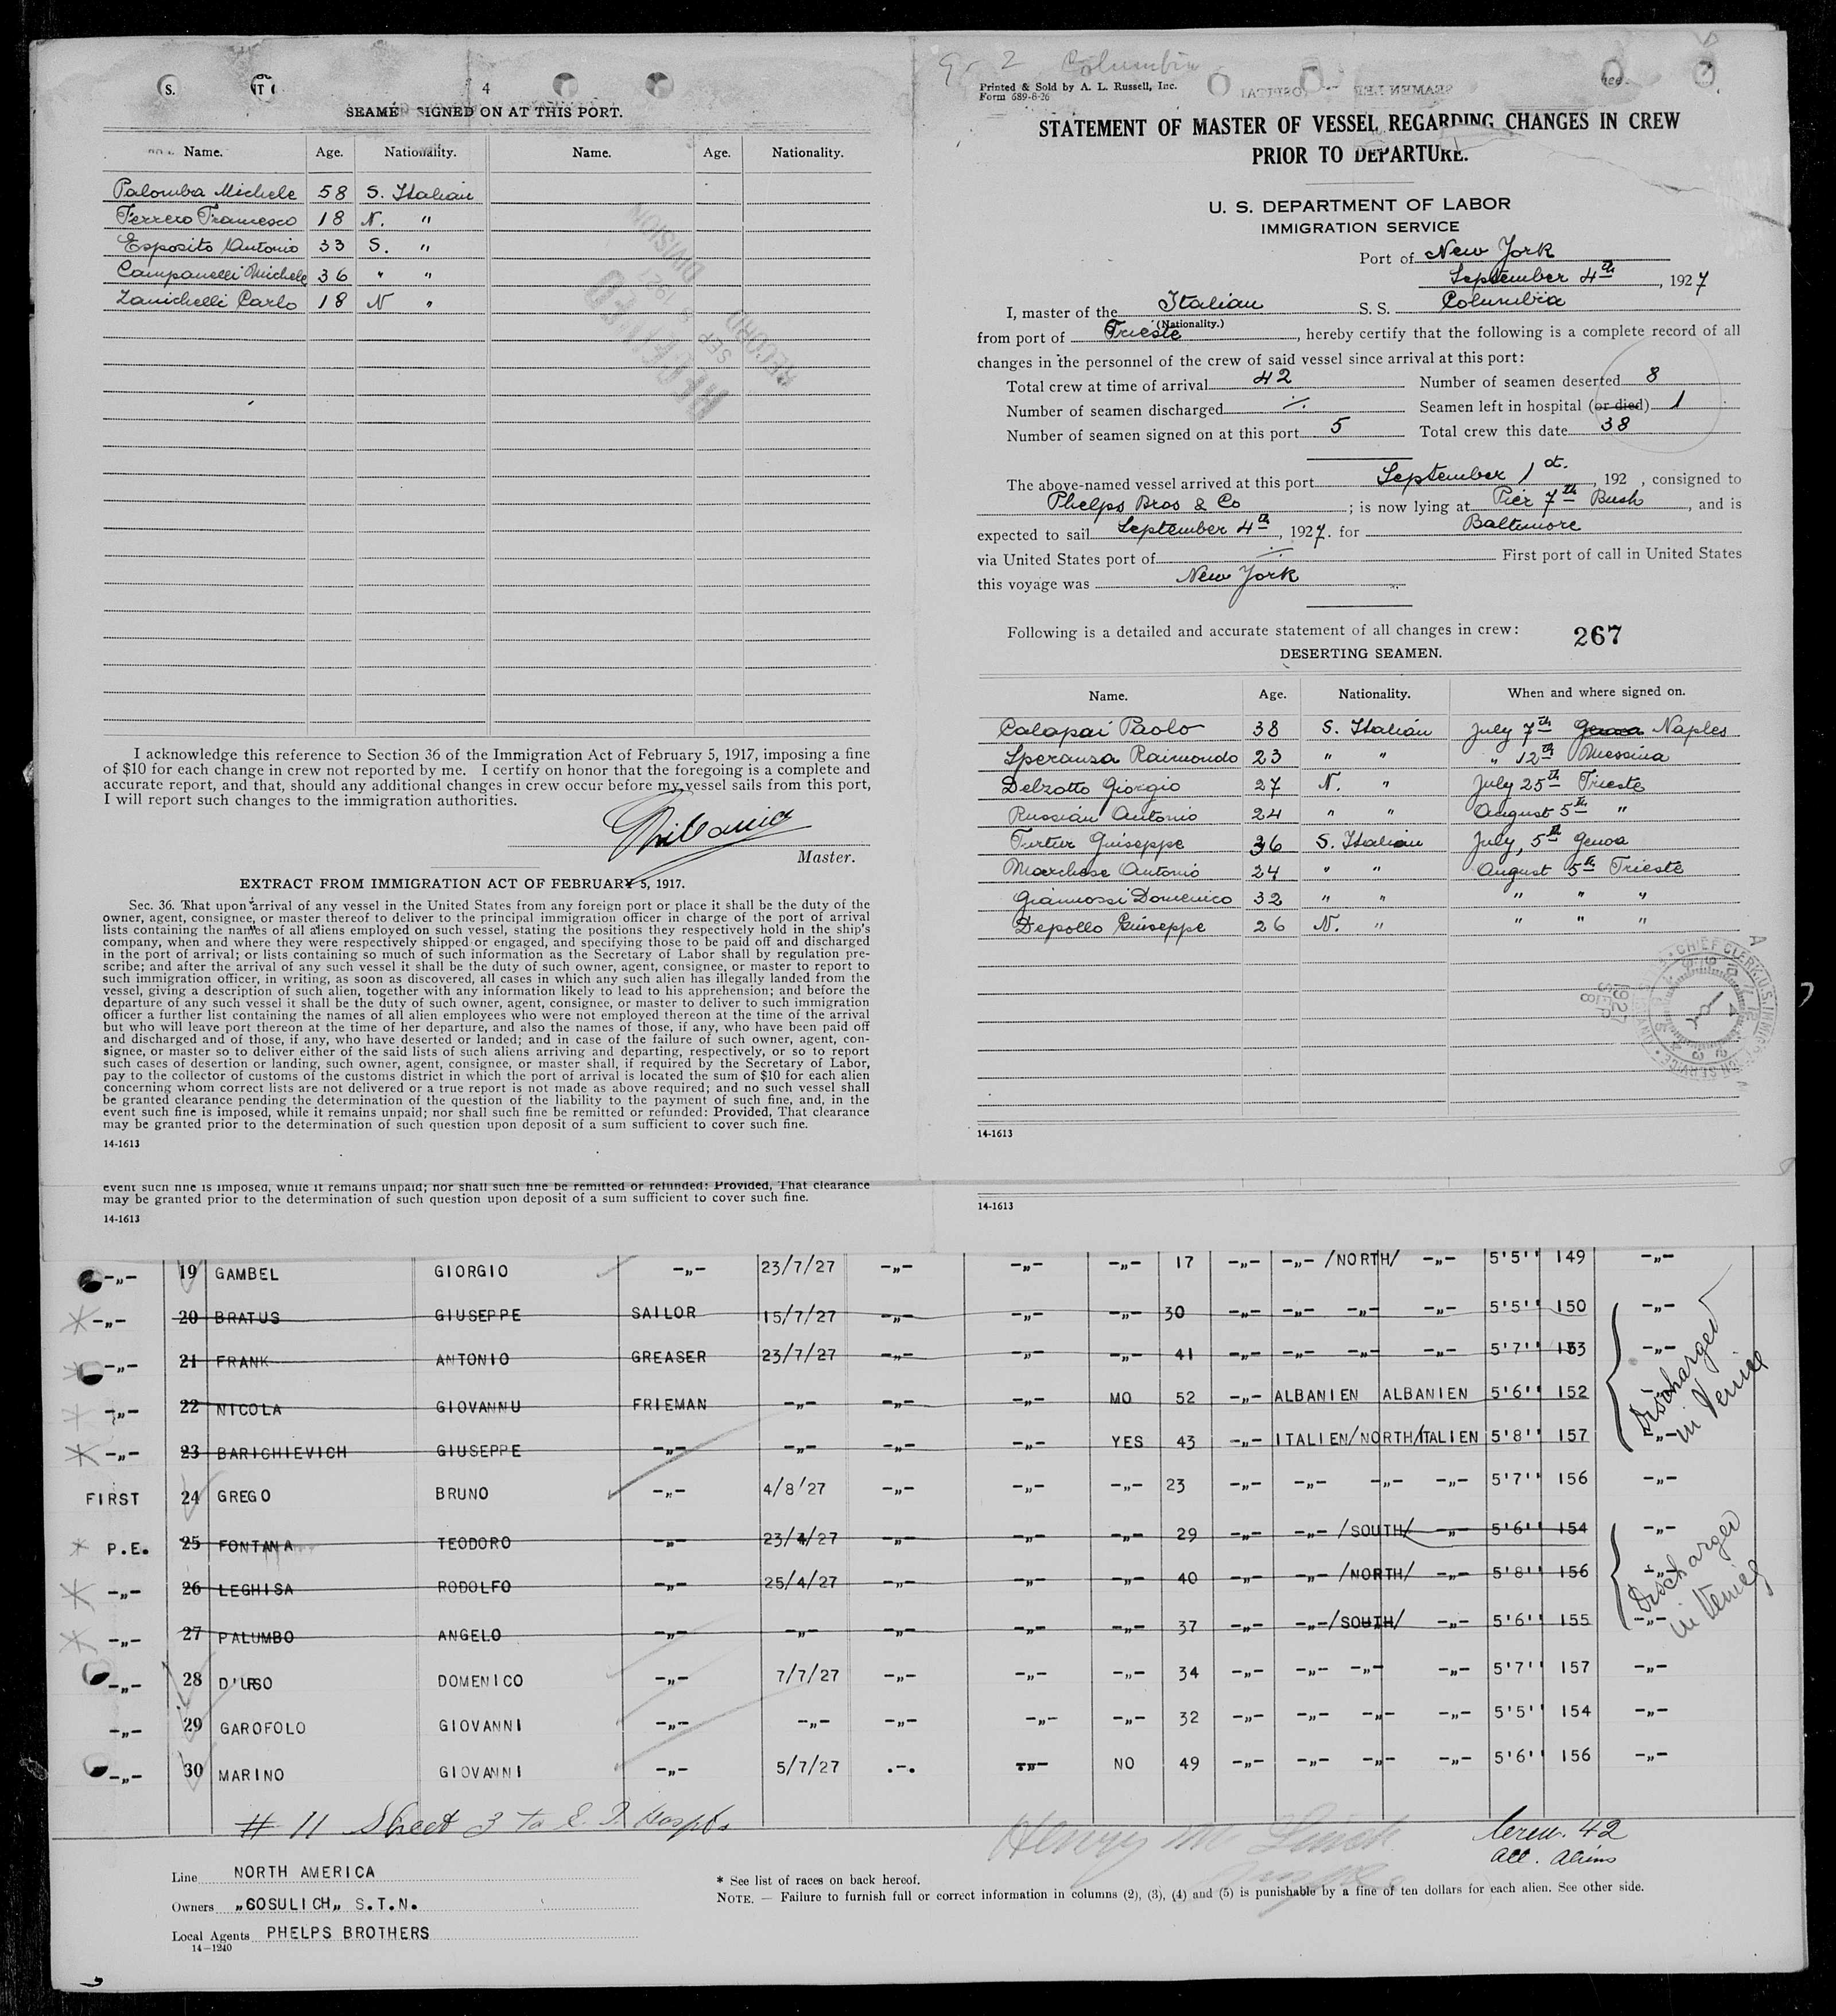 4
SEAMEN SIGNED ON AT THIS PORT.
Name. Age. Nationality. Name. Age. Nationality.
Palomba Michele 58 S. Italian
Ferrero Francesco 18 N. "
Esposito Antonio 33 S. "
Campanelli Michele 36 " "
Zanichelli Carlo 18 N "
RECEIVED
SEP 8 1927
RECORD DIVISION
I acknowledge this reference to Section 36 of the Immigration Act of February 5, 1917, imposing a fine
of $10 for each change in crew not reported by me. I certify on honor that the foregoing is a complete and
accurate report, and that, should any additional changes in crew occur before my vessel sails from this port,
I will report such changes to the immigration authorities.
Master.
EXTRACT FROM IMMIGRATION ACT OF FEBRUARY 5, 1917.
Sec. 36. That upon arrival of any vessel in the United States from any foreign port or place it shall be the duty of the
owner, agent, consignee, or master thereof to deliver to the principal immigration officer in charge of the port of arrival
lists containing the names of all aliens employed on such vessel, stating the positions they respectively hold in the ship's
company, when and where they were respectively shipped or engaged, and specifying those to be paid off and discharged
in the port of arrival; or lists containing so much of such information as the Secretary of Labor shall by regulation pre-
scribe; and after the arrival of any such vessel it shall be the duty of such owner, agent, consignee, or master to report to
such immigration officer, in writing, as soon as discovered, all cases in which any such alien has illegally landed from the
vessel, giving a description of such alien, together with any information likely to lead to his apprehension; and before the
departure of any such vessel it shall be the duty of such owner, agent, consignee, or master to deliver to such immigration
officer a further list containing the names of all alien employees who were not employed thereon at the time of the arrival
but who will leave port thereon at the time of her departure, and also the names of those, if any, who have been paid off
and discharged and of those, if any, who have deserted or landed; and in case of the failure of such owner, agent, con-
signee, or master so to deliver either of the said lists of such aliens arriving and departing, respectively, or so to report
such cases of desertion or landing, such owner, agent, consignee, or master shall, if required by the Secretary of Labor,
pay to the collector of customs of the customs district in which the port of arrival is located the sum of $10 for each alien
concerning whom correct lists are not delivered or a true report is not made as above required; and no such vessel shall
be granted clearance pending the determination of the question of the liability to the payment of such fine, and, in the
event such fine is imposed, while it remains unpaid; nor shall such fine be remitted or refunded: Provided, That clearance
may be granted prior to the determination of such question upon deposit of a sum sufficient to cover such fine.
14-1613
Columbia
Printed & Sold by A. L. Russell, Inc.
Form 689-6-26
STATEMENT OF MASTER OF VESSEL REGARDING CHANGES IN CREW
PRIOR TO DEPARTURE.
U. S. DEPARTMENT OF LABOR
IMMIGRATION SERVICE
Port of New York
September 4th, 1927
I, master of the Italian S. S. Columbia
(Nationality.)
from port of Trieste, hereby certify that the following is a complete record of all
changes in the personnel of the crew of said vessel since arrival at this port:
Total crew at time of arrival 42 Number of seamen deserted 8
Number of seamen discharged ./. Seamen left in hospital (or died) 1
Number of seamen signed on at this port 5 Total crew this date 38
The above-named vessel arrived at this port September 1st., 192 , consigned to
Phelps Bros & Co ; is now lying at Pier 7th Bush, and is
expected to sail September 4th, 1927. for Baltimore
via United States port of ./. First port of call in United States
this voyage was New York
Following is a detailed and accurate statement of all changes in crew: 267
DESERTING SEAMEN.
Name. Age. Nationality. When and where signed on.
Calapai Paolo 38 S. Italian July 7th Genoa Naples
Speranza Raimondo 23 " " " 12th Messina
Delzotto Giorgio 27 N. " July 25th Trieste
Russian Antonio 24 " " August 5th "
Turtur Giuseppe 36 S. Italian July, 5th Genoa
Marchese Antonio 24 " " August 5th Trieste
Giannossi Domenico 32 " " " " "
Depollo Giuseppe 26 N. " " " "
1927 SEP 8
14-1613
event such fine is imposed, while it remains unpaid; nor shall such fine be remitted or refunded: Provided, That clearance
may be granted prior to the determination of such question upon deposit of a sum sufficient to cover such fine.
14-1613
14-1613
-"- 19 GAMBEL GIORGIO -"- 23/7/27 -"- -"- -"- 17 -"- -"- /NORTH/ -"- 5'5'' 149 -"-
-"- 20 BRATUS GIUSEPPE SAILOR 15/7/27 -"- -"- -"- 30 -"- -"- -"- -"- 5'5'' 150 -"-
-"- 21 FRANK ANTONIO GREASER 23/7/27 -"- -"- -"- 41 -"- -"- -"- -"- 5'7'' 153 -"-
-"- 22 NICOLA GIOVANNU FRIEMAN -"- -"- -"- MO 52 -"- ALBANIEN ALBANIEN 5'6'' 152
-"- 23 BARICHIEVICH GIUSEPPE -"- -"- -"- -"- YES 43 -"- ITALIEN/NORTH/ITALIEN 5'8'' 157 -"-
Discharged in Venice
FIRST 24 GREGO BRUNO -"- 4/8/27 -"- -"- -"- 23 -"- -"- -"- -"- 5'7'' 156 -"-
P.E. 25 FONTANA TEODORO -"- 23/4/27 -"- -"- -"- 29 -"- -"- /SOUTH/ -"- 5'6'' 154 -"-
-"- 26 LEGHISA RODOLFO -"- 25/4/27 -"- -"- -"- 40 -"- -"- /NORTH/ -"- 5'8'' 156 -"-
-"- 27 PALUMBO ANGELO -"- -"- -"- -"- -"- 37 -"- -"-/SOUTH/ -"- 5'6'' 155 -"-
Discharged in Venice
-"- 28 D'URSO DOMENICO -"- 7/7/27 -"- -"- -"- 34 -"- -"- -"- -"- 5'7'' 157 -"-
-"- 29 GAROFOLO GIOVANNI -"- -"- -"- -"- -"- 32 -"- -"- -"- -"- 5'5'' 154 -"-
-"- 30 MARINO GIOVANNI -"- 5/7/27 .-. -"- NO 49 -"- -"- -"- -"- 5'6'' 156 -"-
# 11 Sheet 3 to E. I. Hospt.
Henry M
Crew. 42
All. Aliens
Line NORTH AMERICA
Owners „COSULICH„ S.T.N.
Local Agents PHELPS BROTHERS
14-1240
* See list of races on back hereof.
NOTE. — Failure to furnish full or correct information in columns (2), (3), (4) and (5) is punishable by a fine of ten dollars for each alien. See other side.